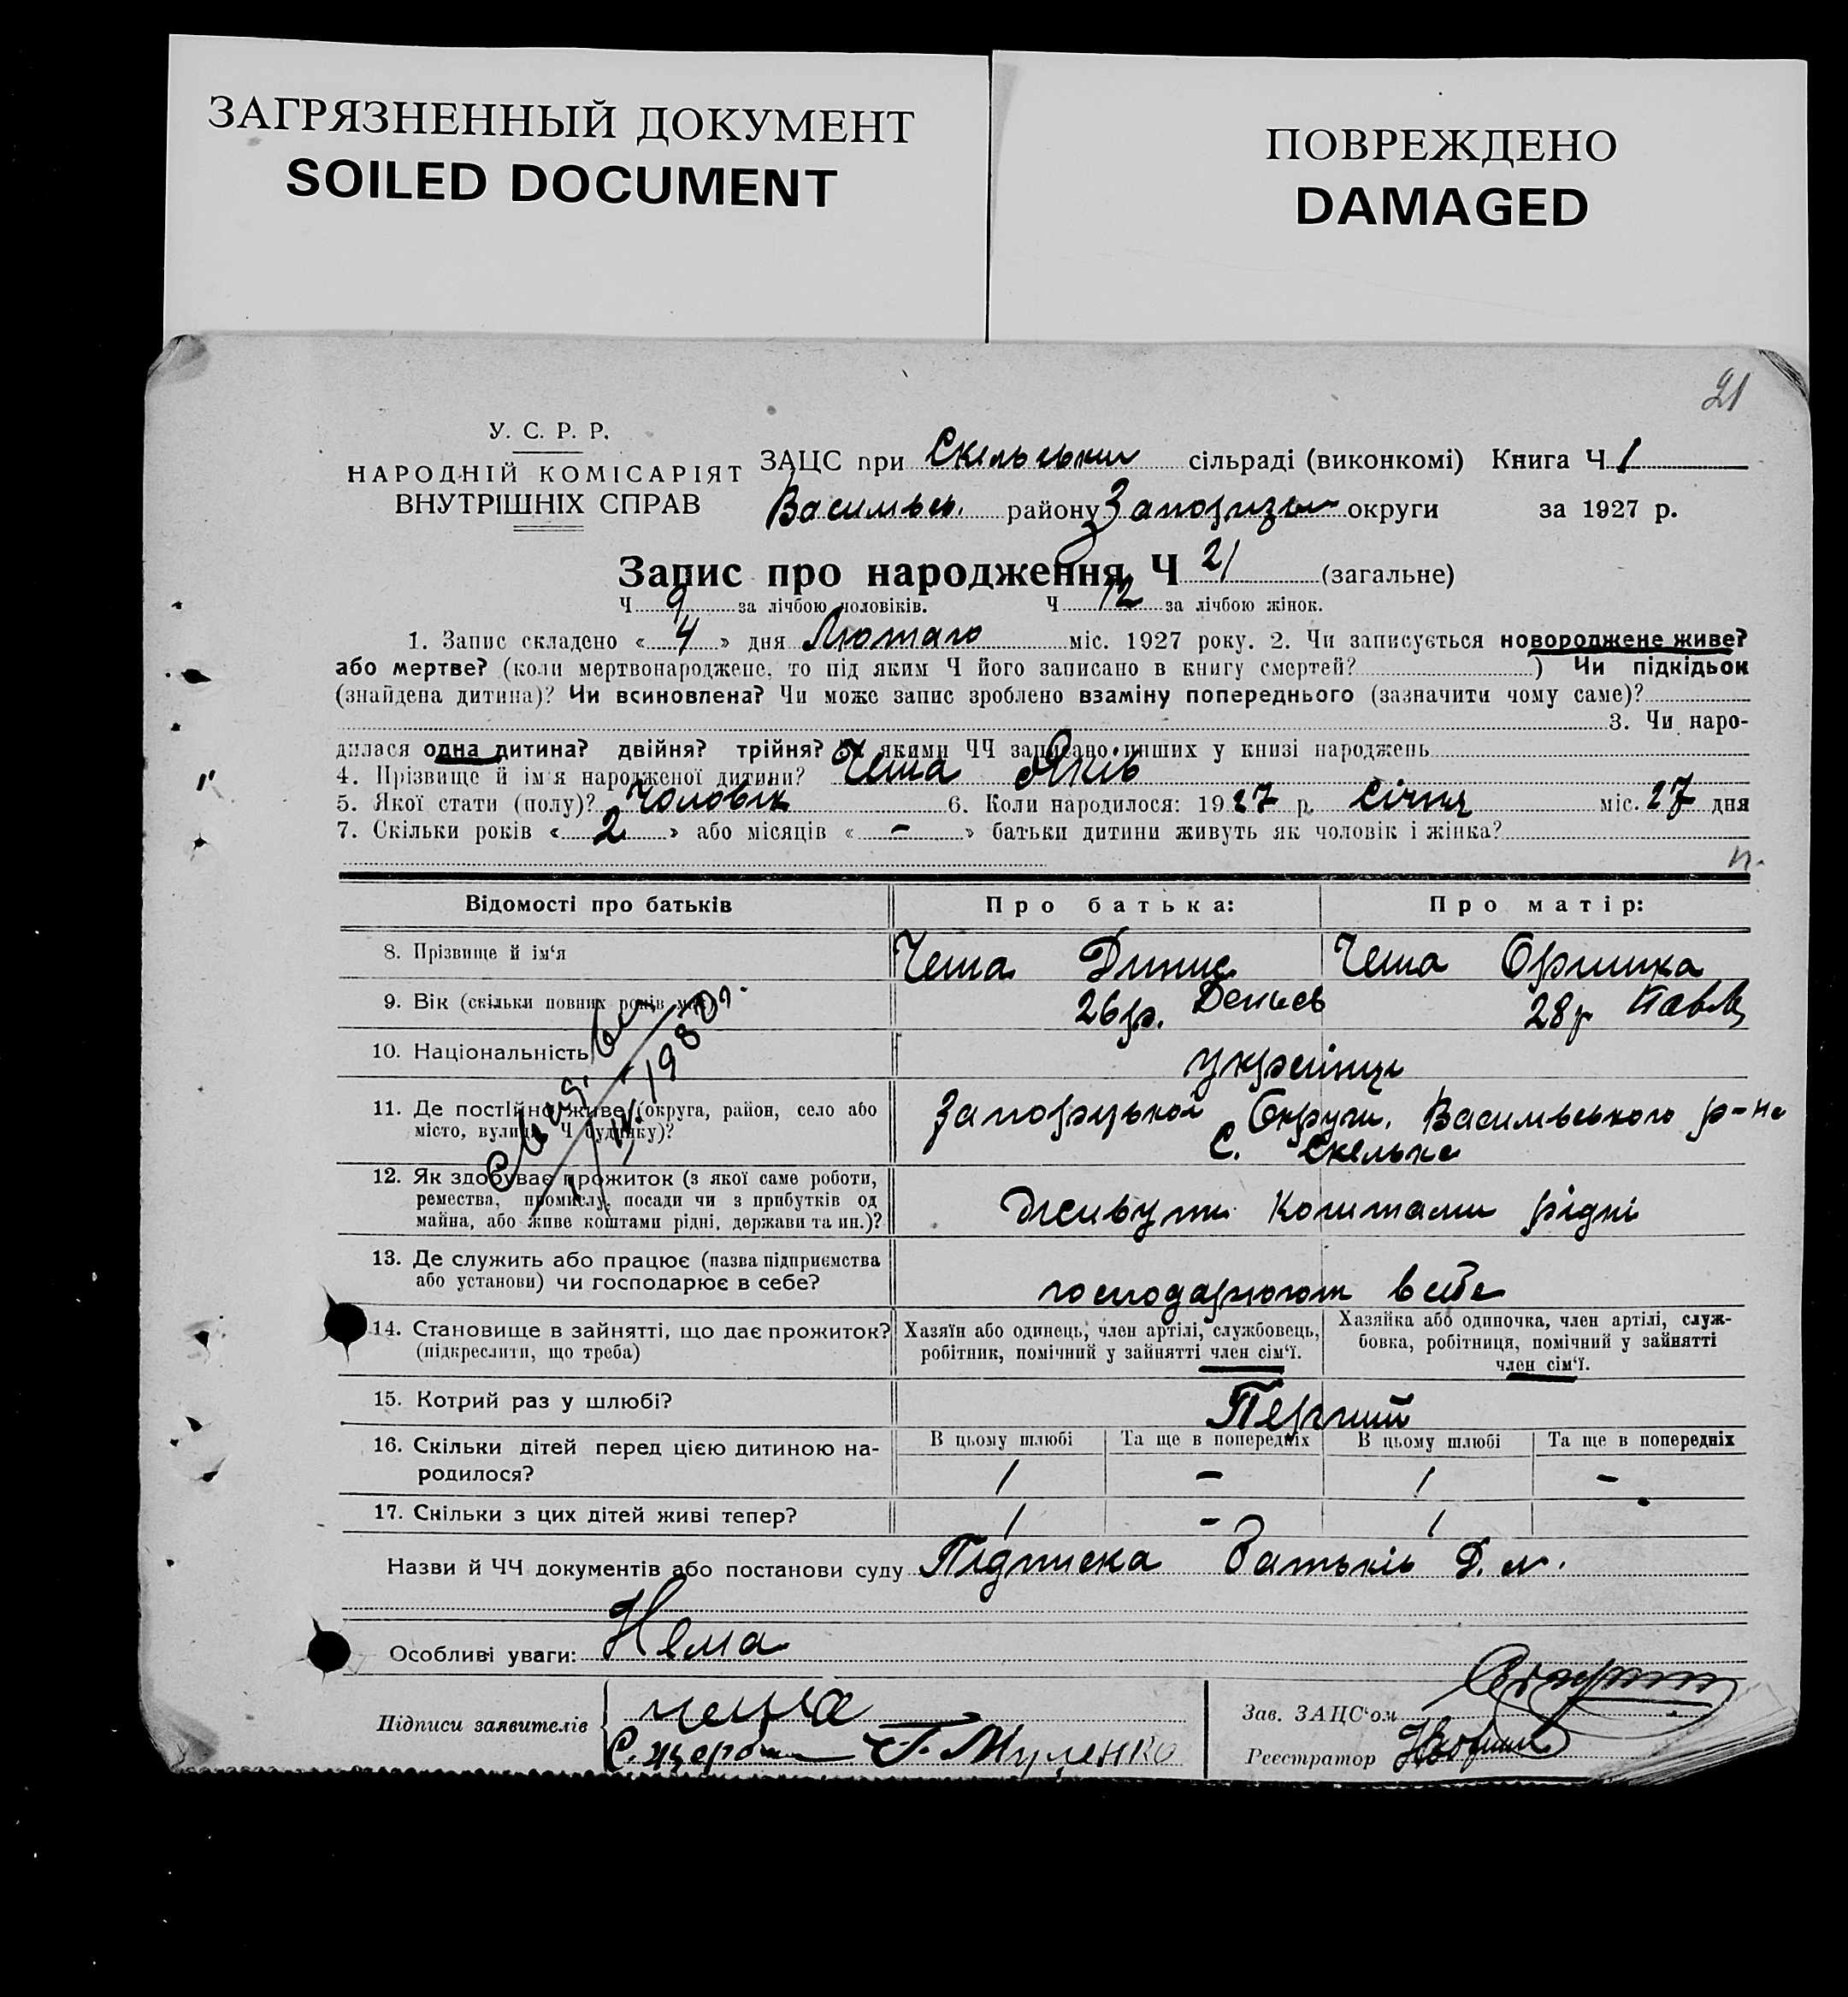 ЗАГРЯЗНЕННЫЙ ДОКУМЕНТ
SOILED DOCUMENT
ПОВРЕЖДЕНО
DAMAGED
21
У. С. Р. Р.
НАРОДНІЙ КОМІСАРІЯТ
ВНУТРІШНІХ СПРАВ
ЗАЦС при Скельськи сільраді (виконкомі) Книга Ч 1
Васильв. району Запоризьк округи за 1927 р.
Запис про народження Ч 21 (загальне)
Ч 9 за лічбою чоловіків. Ч 12 за лічбою жінок.
1. Запис складено «4» дня Лютаго міс. 1927 року. 2. Чи записується новороджене живе?
або мертве? (коли мертвонароджене, то під яким Ч його записано в книгу смертей? ) Чи підкідьок
(знайдена дитина)? Чи всиновлена? Чи може запис зроблено взаміну попереднього (зазначити чому саме)?
3. Чи наро-
дилася одна дитина? двійня? трійня? За якими ЧЧ записано инших у книзі народжень
4. Прізвище й ім'я народженої дитини? Чепа Яків
5. Якої стати (полу)? Чоловік 6. Коли народилося: 1927 р. Січня міс. 27 дня
7. Скільки років «2» або місяців «-» батьки дитини живуть як чоловік і жінка?
Відомості про батьків Про батька: Про матір:
8. Прізвище й ім'я Чепа Динис Чепа Оришка
9. Вік (скільки повних років має) 26 р. Денис 28 р
10. Національність українці
11. Де постійно живе (округа, район, село або
місто, вулиця, Ч будинку)?
Запорізької Округи, Васильвського р-на
С. Скельке
1980 г.
12. Як здобуває прожиток (з якої саме роботи,
ремества, промислу, посади чи з прибутків од
майна, або живе коштами рідні, держави та ин.)?
Живути Коштами рідні
13. Де служить або працює (назва підприємства
або установи) чи господарює в себе?
господарюют в себе
14. Становище в зайнятті, що дає прожиток?
(підкреслити, що треба)
Хазяїн або одинець, член артілі, службовець,
робітник, помічний у зайнятті член сім'ї.
Хазяйка або одиночка, член артілі, служ-
бовка, робітниця, помічний у зайнятті
член сім'ї.
15. Котрий раз у шлюбі? Перший
16. Скільки дітей перед цією дитиною на-
родилося?
В цьому шлюбі Та ще в попередніх В цьому шлюбі Та ще в попередніх
1 - 1 -
17. Скільки з цих дітей живі тепер? 1 - 1
Назви й ЧЧ документів або постанови суду Підписка Батьків
Особливі уваги: Нема
Підписи заявителів
Зав. ЗАЦС'ом
Реєстратор